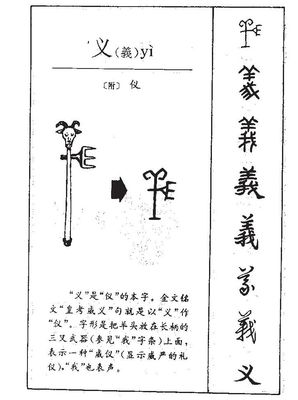 义(義)yì
〔附〕 仪
“义”是“仪”的本字。金文铭
文“皇考威义”句就是以“义”作
“仪”。字形是把羊头放在长柄的
三叉武器(参见“我”字条)上面,
表示一种“威仪”(显示威严的礼
仪)。“我”也表声。
義
義
義
義
义